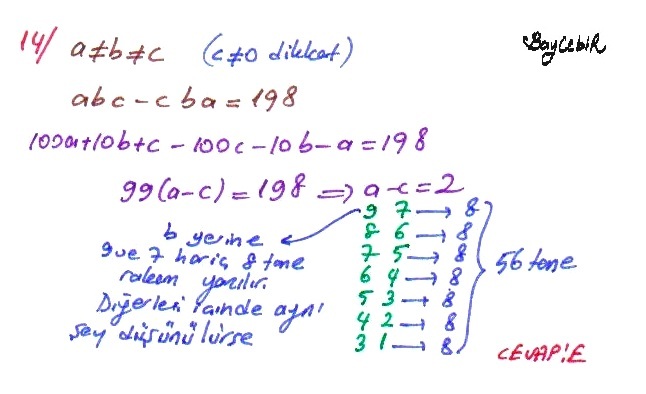 14/ a≠b≠c (c≠0 dikkat)
BAYCEBİR
abc - cba = 198
100a+10b+c - 100c - 10b - a = 198
99(a-c) = 198 ⟹ a-c = 2
9 7 → 8
8 6 → 8
7 5 → 8
6 4 → 8
5 3 → 8
4 2 → 8
3 1 → 8
56 tane
b yerine
9 ve 7 hariç 8 tane
rakam yazılır.
Diğerleri içinde aynı
şey düşünülürse
CEVAP:E